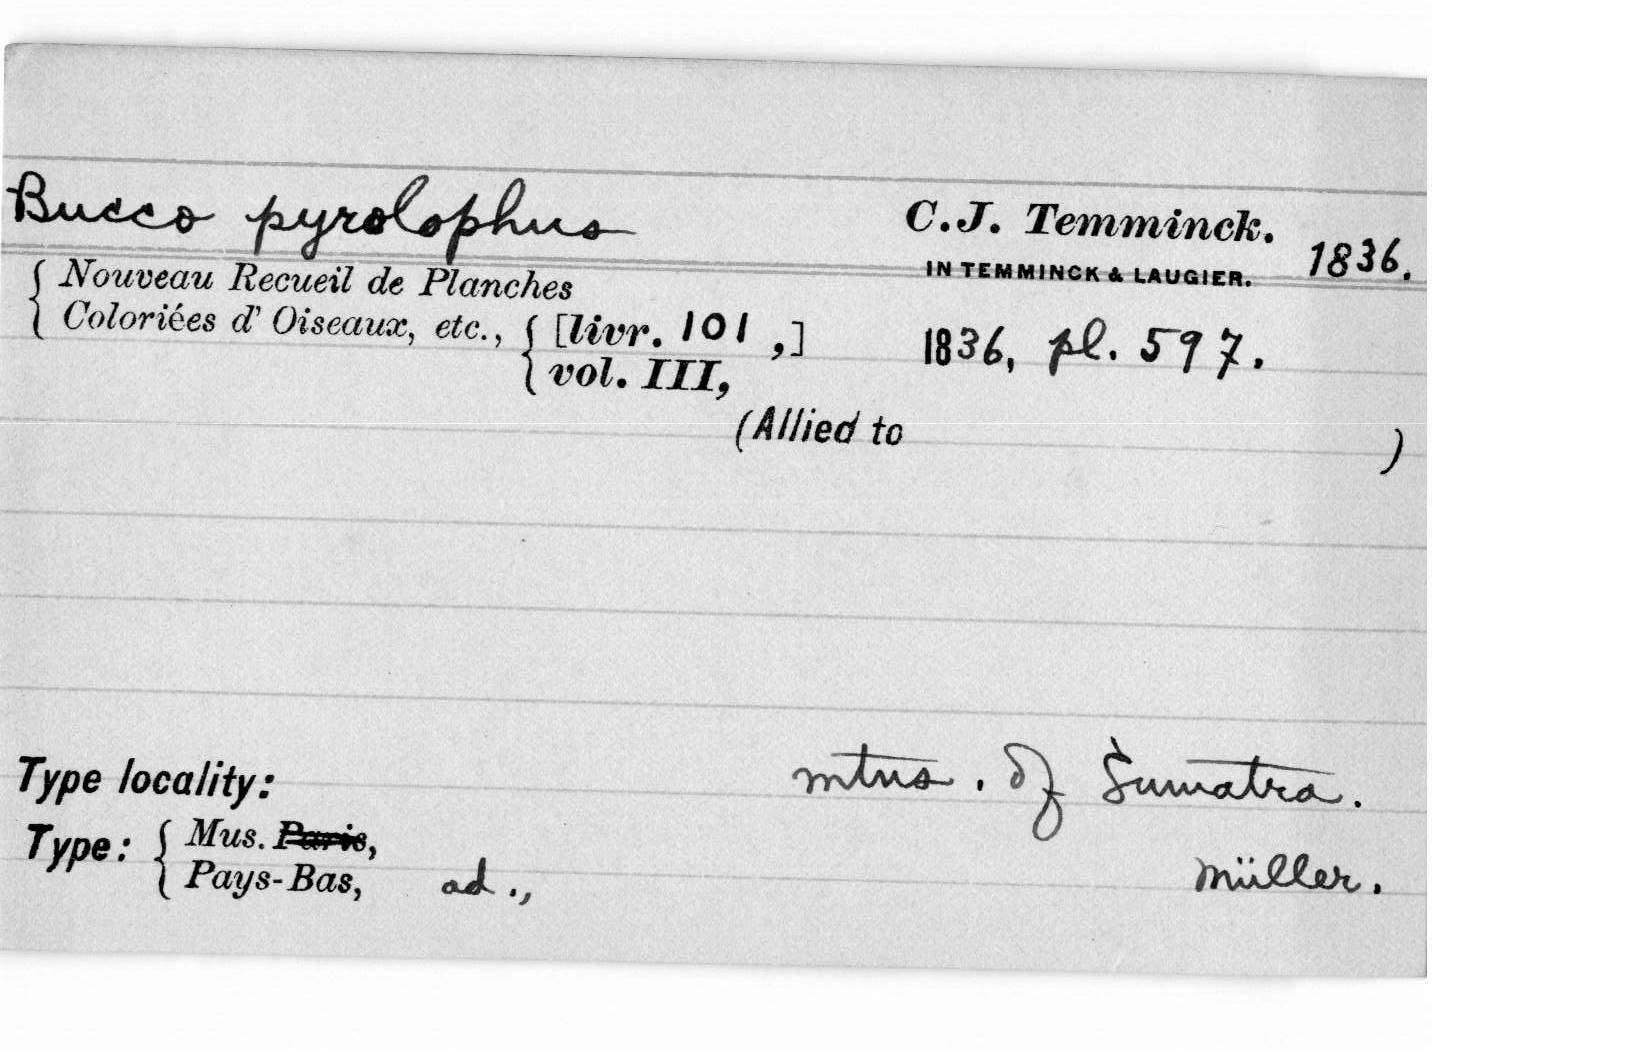 Bucco pyrolophus C.J. Temminck. 1836.
IN TEMMINCK & LAUGIER.
{ Nouveau Recueil de Planches
Coloriées d' Oiseaux, etc., { [livr. 101 ,] 1836, pl. 597.
vol. III,
(Allied to )
Type locality: mtns. of Sumatra.
Type: { Mus. Paris,
Pays-Bas, ad., Müller.